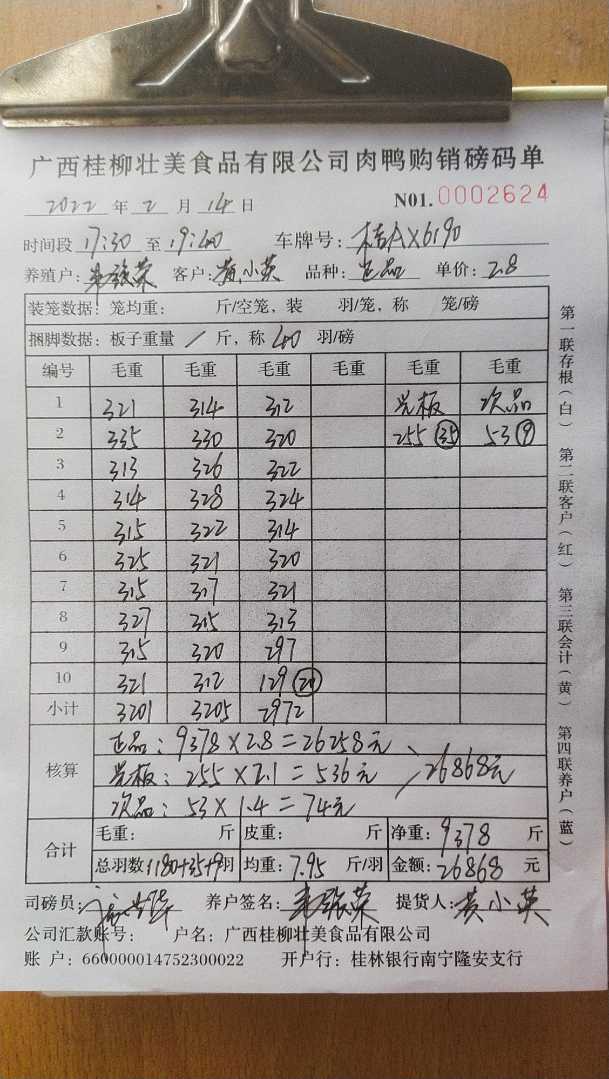 广西桂柳壮美食品有限公司肉鸭购销磅码单
2022 年 2 月 14 日 N01.0002624
时间段 17:30 至 19:40 车牌号: 桂AX6190
养殖户: 韦振荣 客户: 黄小英 品种: 正品 单价: 2.8
装笼数据: 笼均重: 斤/空笼, 装 羽/笼, 称 笼/磅
捆脚数据: 板子重量 / 斤, 称 40 羽/磅
编号 毛重 毛重 毛重 毛重 毛重 毛重
1 321 314 312 光板 次品
2 335 330 320 255 (35) 53 (9)
3 313 326 322
4 314 328 324
5 315 322 314
6 325 321 320
7 315 317 321
8 327 315 313
9 315 320 297
10 321 312 129 (20)
小计 3201 3205 2972
核算
正品: 9378 × 2.8 = 26258元
光板: 255 × 2.1 = 536元
次品: 53 × 1.4 = 74元
26868元
合计
毛重: 斤 皮重: 斤 净重: 9378 斤
总羽数 1180+35+9羽 均重: 7.95 斤/羽 金额: 26868 元
司磅员: 养户签名: 韦振荣 提货人: 黄小英
公司汇款账号: 户名: 广西桂柳壮美食品有限公司
账 户: 660000014752300022 开户行: 桂林银行南宁隆安支行
第一联存根(白) 第二联客户(红) 第三联会计(黄) 第四联养户(蓝)